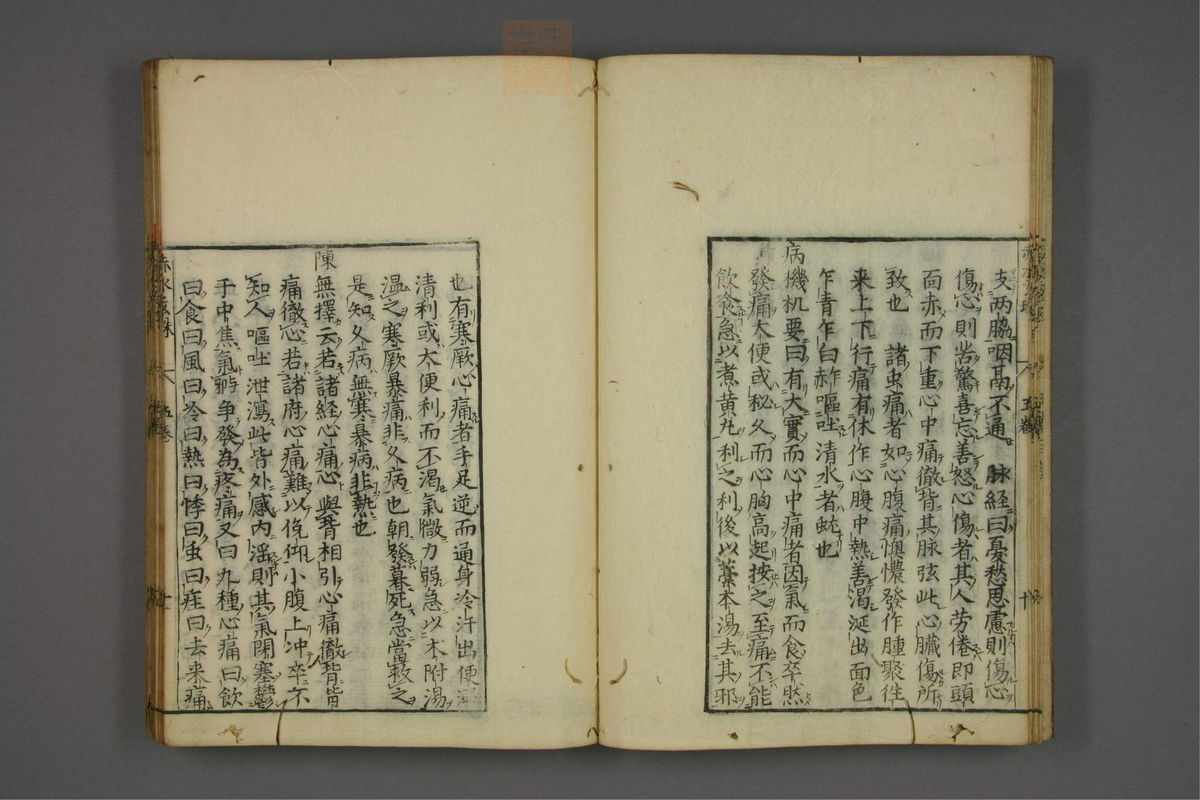 支两脇咽鬲不通　脉経曰憂愁思慮則傷心
傷心則苦驚喜忘善怒心傷者其人劳倦即頭
面赤而下重心中痛徹背其脉弦此心臓傷所
致也　諸虫痛者如心腹痛懊憹發作腫聚徃
来上下行痛有休作心腹中熱善渴涎出面色
乍青乍白赤嘔吐清水者蚘也
病機机要曰有大實而心中痛者因氣而食卒然
發痛大便或秘久而心胸高起按之至痛不能
飲食急以煮黄丸利之利後以藁本湯去其邪
也有寒厥心痛者手足逆而通身冷汗出便溺
清利或大便利而不渴氣微力弱急以术附湯
温之寒厥暴痛非久病也朝發暮死急當救之
是知久病無寒暴病非熱也
陳無擇云若諸経心痛心與背相引心痛徹背皆
痛徹心若諸府心痛難以俛仰小腹上冲卒不
知人嘔吐泄瀉此皆外感内滛則其氣閉塞鬱
手中焦氣與争發為疼痛又曰九種心痛曰飲
曰食曰風曰冷曰熱曰悸曰虫曰疰曰去来痛